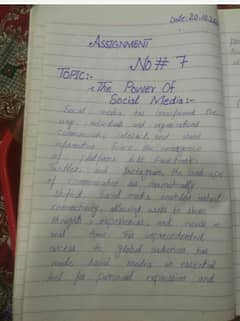 Date: 20.10.20
ASSIGNMENT
No# 7
TOPIC:-
The Power Of
Social Media:-
Social media has transformed the
way individuals and organizations
communicate, interact, and share
information. Since the emergence
of platforms like Facebook,
Twitter, and Instagram, the
of communication has dramatically
shifted. Social media enables instant
connectivity, allowing users to share
thoughts, experiences, and news in
real time. This unprecedented
access to global audiences has
made social media an essential
tool for personal expression and